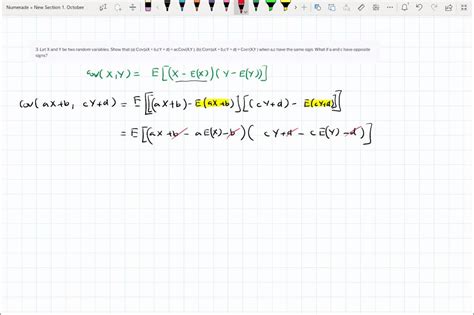 Numerade » New Section 1. October
3. Let X and Y be two random variables. Show that (a) Cov(aX + b,cY + d) = acCov(X,Y ); (b) Corr(aX + b,cY + d) = Corr(X,Y ) when a,c have the same sign. What if a and c have opposite
signs?
Cov(X,Y) = E[(X - E(X))(Y - E(Y))]
Cov(aX+b, cY+d) = E[[(aX+b) - E(aX+b)][(cY+d) - E(cY+d)]]
= E[(aX+b - aE(X)-b)(cY+d - cE(Y)-d)]